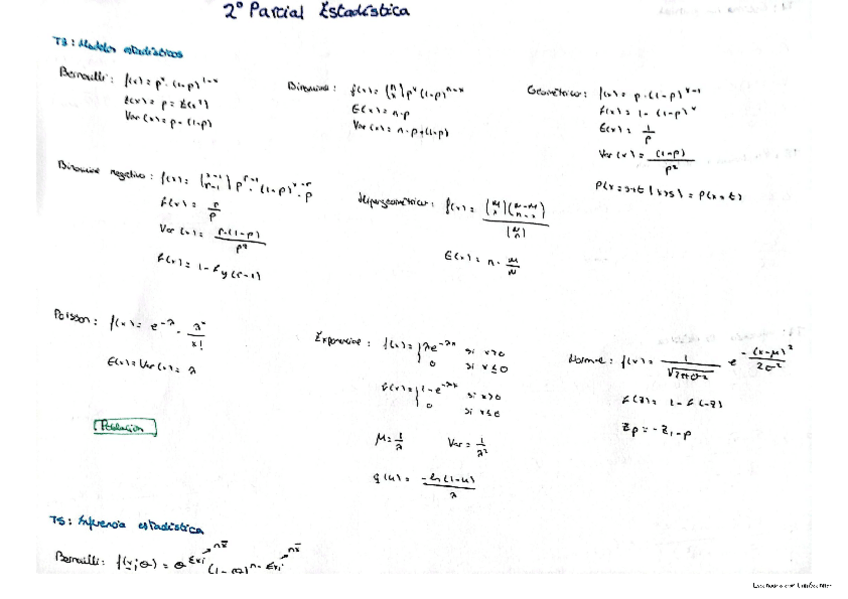 2º Parcial Estadística
T3: Modelos estadísticos
Bernoulli: f(x) = p^x · (1-p)^{1-x}
E(x) = p = E(x²)
Var(x) = p · (1-p)
Binomial: f(x) = (n x) p^x (1-p)^{n-x}
E(x) = n·p
Var(x) = n·p·(1-p)
Geométrica: f(x) = p · (1-p)^{x-1}
F(x) = 1 - (1-p)^x
E(x) = 1/p
Var(x) = (1-p)/p²
P(x = s+t | x>s) = P(x = t)
Binomial negativa: f(x) = (x-1 r-1) p^{r-1} · (1-p)^{x-r} · p
E(x) = r/p
Var(x) = r·(1-p)/p²
F(x) = 1 - Fy(r-1)
Hipergeométrica: f(x) = (M x)(N-M n-x) / (N n)
E(x) = n · M/N
Poisson: f(x) = e^{-λ} · λ^x/x!
E(x) = Var(x) = λ
Exponencial: f(x) = { λe^{-λx} si x>0
0 si x≤0
F(x) = { 1-e^{-λx} si x>0
0 si x≤0
μ = 1/λ Var = 1/λ²
q(u) = -ln(1-u)/λ
Normal: f(x) = 1/√2πσ² e^{-(x-μ)²/2σ²}
F(z) = 1 - F(-z)
Zp = -Z1-p
Población
T5: Inferencia estadística
Bernoulli: f(x;θ) = θ^{Σxi} (1-θ)^{n-Σxi}
nx̄ nx̄